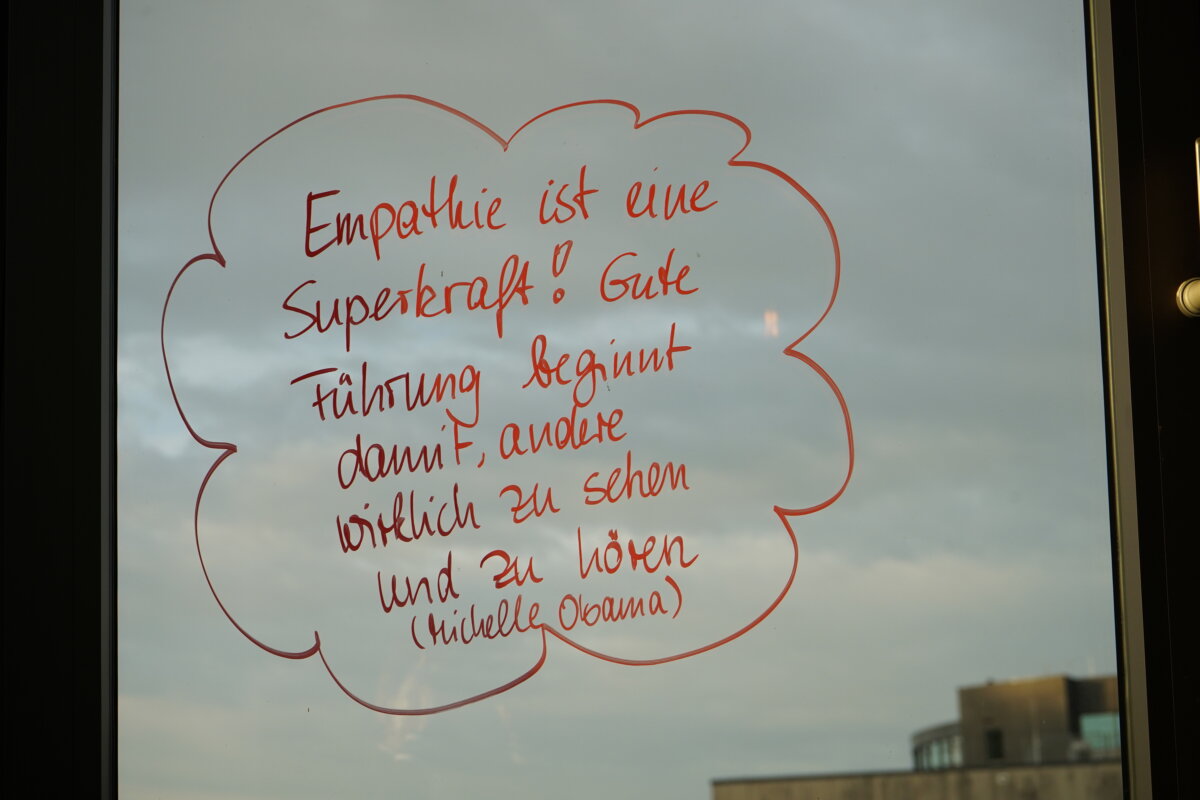 Empathie ist eine
Superkraft! Gute
Führung beginnt
damit, andere
wirklich zu sehen
und zu hören
(Michelle Obama)